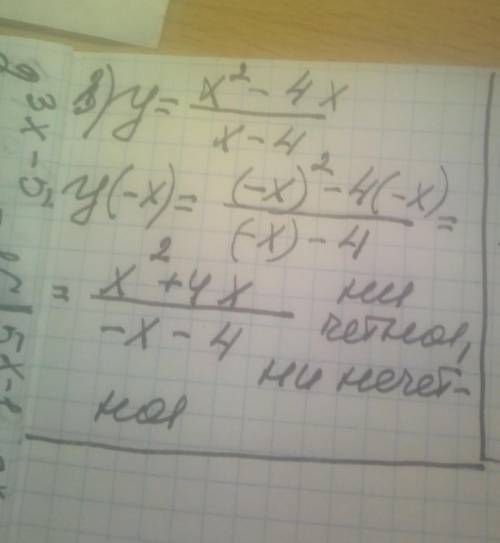 в) y = (x² - 4x)/(x - 4)
y(-x) = ((-x)² - 4(-x))/((-x) - 4) =
= (x² + 4x)/(-x - 4) ни
четная,
ни нечет-
ная
3x - 5
5x -